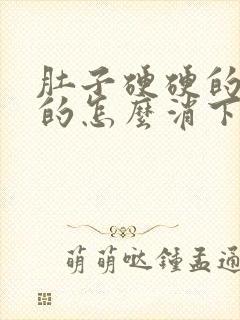 肚子硬硬的
的怎麼消下
萌萌哒鍾孟通